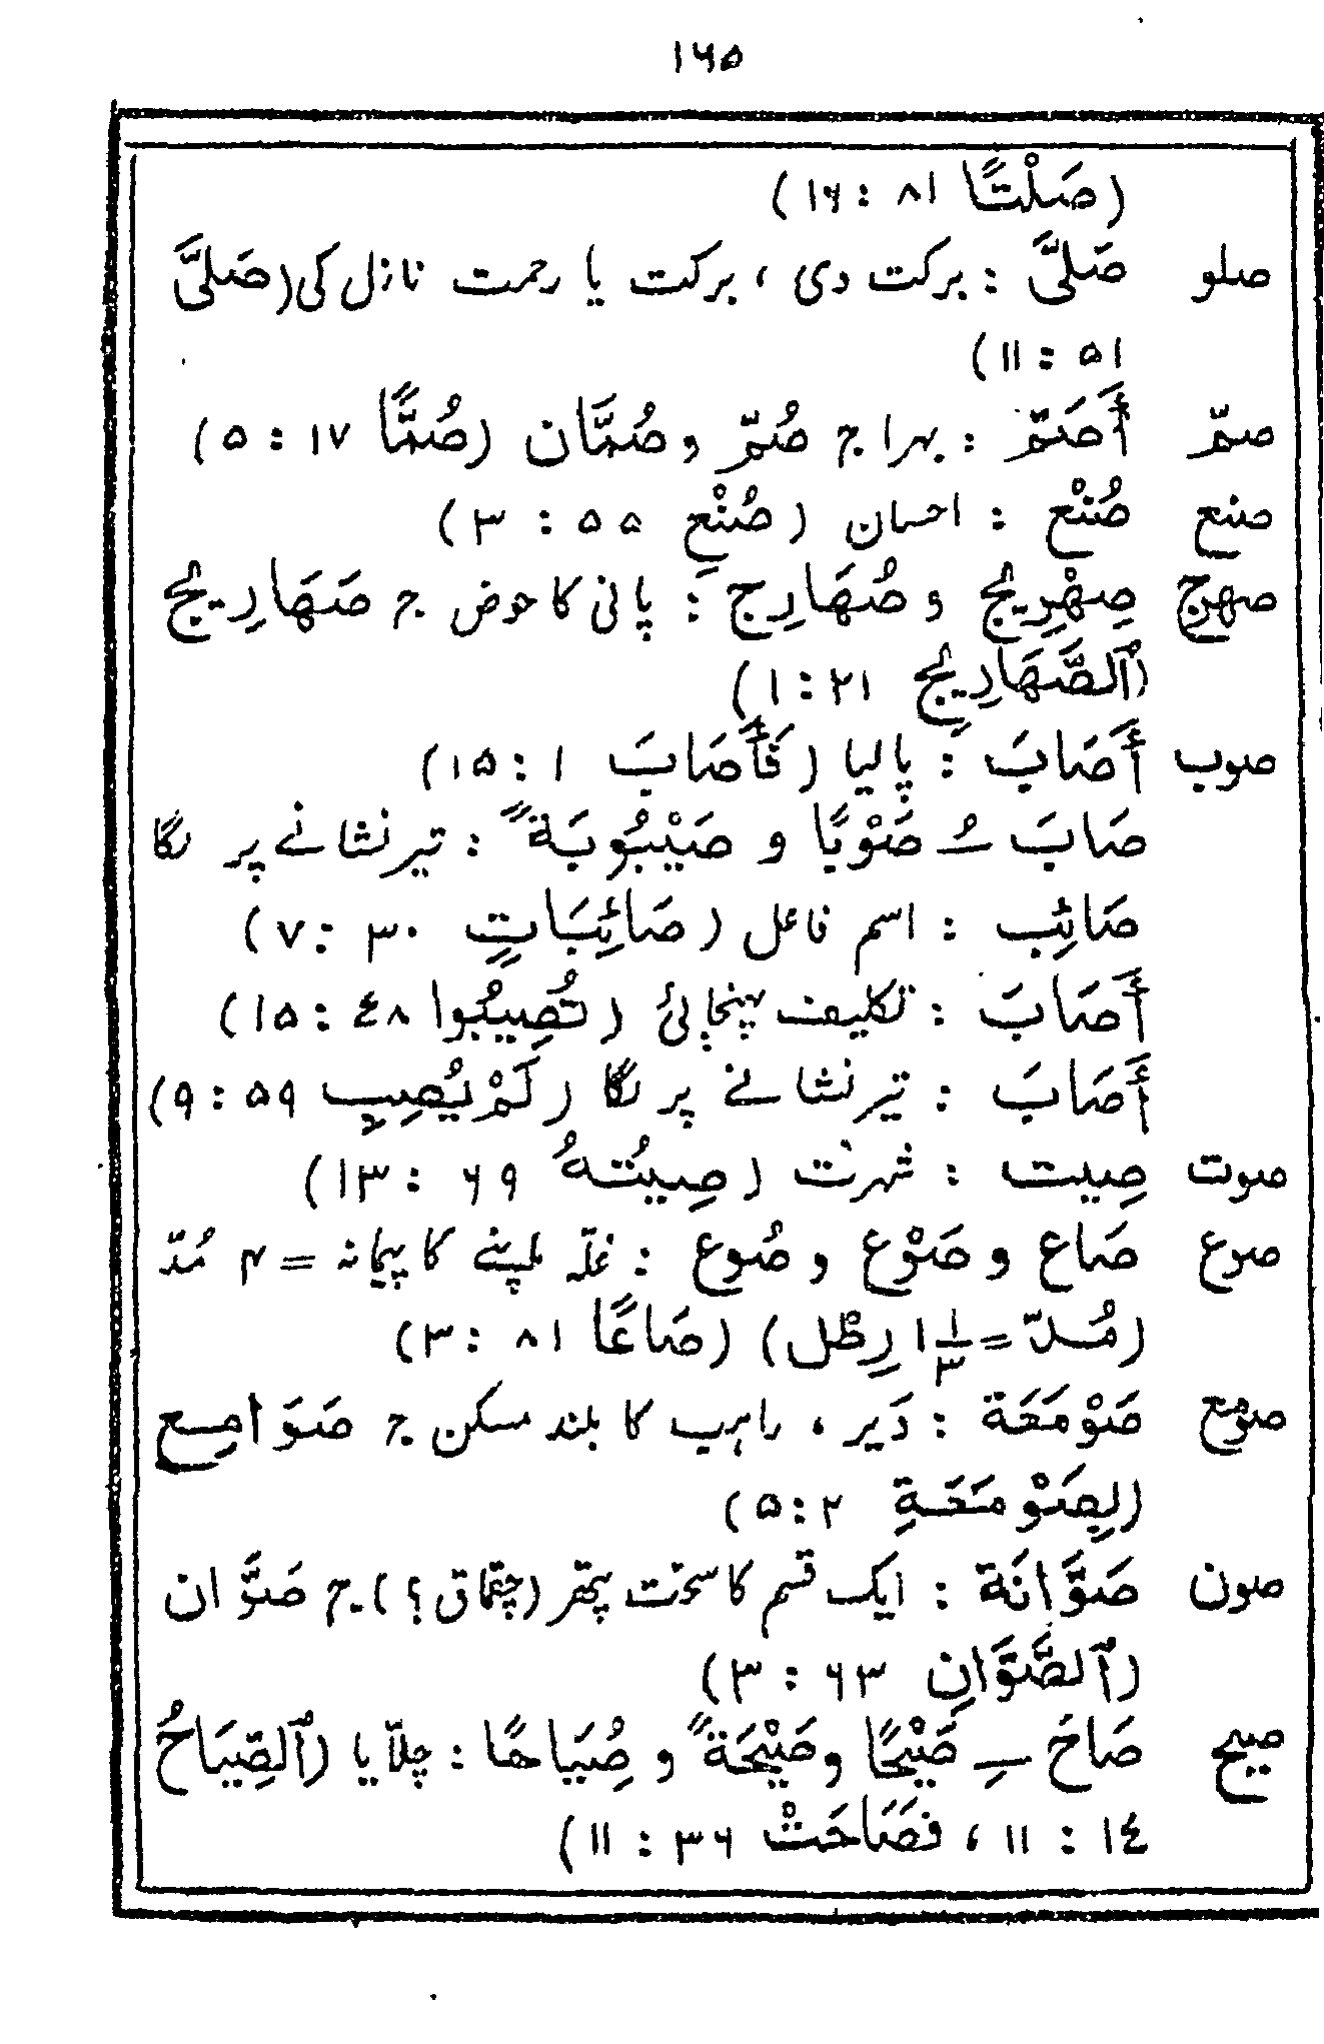 ۱۶۵
(صَلْتًا ۸۱ : ۱۶)
صلو صَلَّىٰ : برکت دی ، برکت یا رحمت نازل کی (صَلَّىٰ
۵۱ : ۱۱)
صمّ أَصَمّ : بہرا ج صُمّ و صُمَّان (صُمًّا ۱۷ : ۵)
صنع صُنْع : احسان (صُنْعِ ۵۵ : ۳)
صهرج صِهْرِيْج و صُهَارِج : پانی کا حوض ج صَهَارِيْج
(ٱلصَّهَارِيْجِ ۲۱ : ۱)
صوب أَصَابَ : پا لیا (فَأَصَابَ ۱ : ۱۵)
صَابَ ـُ صَوْبًا و صَيْبُوبَةً : تیر نشانے پر لگا
صَائِب : اسم فاعل (صَائِبَاتٍ ۳۰ : ۷)
أَصَابَ : تکلیف پہنچائی (تُصِيبُوا ٤۸ : ۱۵)
أَصَابَ : تیر نشانے پر لگا (لَمْ يُصِبِ ۵۹ : ۹)
صوت صِيت : شہرت (صِيْتُهُ ۶۹ : ۱۳)
صوع صَاع و صَوْع و صُوع : غلّہ ماپنے کا پیمانہ = ۴ مُدّ
(مُدّ = ۱ ۱/۳ رِطْل) (صَاعًا ۸۱ : ۳)
صومع صَوْمَعَة : دَیر ، راہب کا بلند مسکن ج صَوَامِع
(لِصَوْمَعَةِ ۲ : ۵)
صون صَوَّانَة : ایک قسم کا سخت پتھر (چقماق ؟) ۔ ج صَوَّان
(ٱلصَّوَّانِ ۶۳ : ۳)
صيح صَاحَ ـِ صَيْحًا و صَيْحَةً و صِيَاحًا : چلّایا (ٱلصِّيَاحُ
۱٤ : ۱۱ ، فَصَاحَتْ ۳۶ : ۱۱)